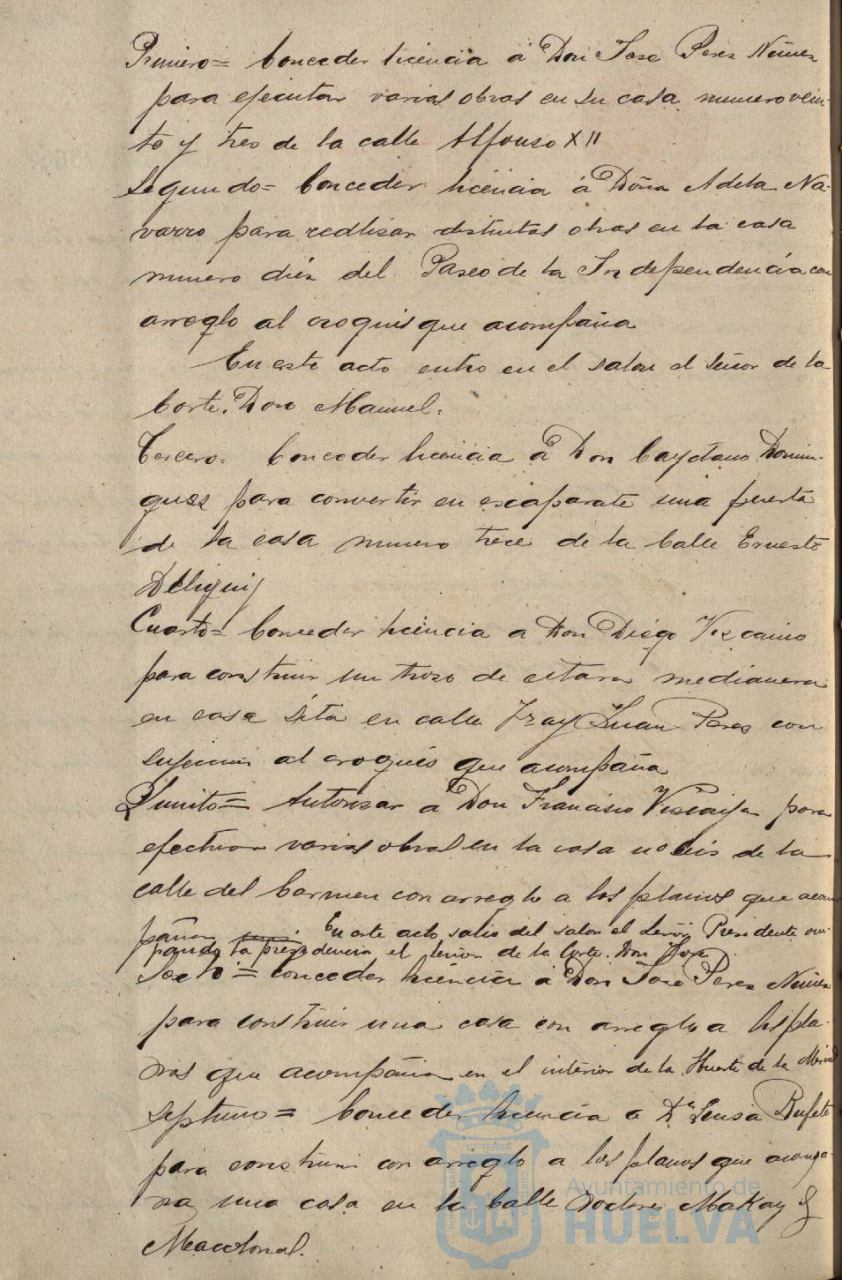 Primero= Conceder licencia á Don Jose Perez Nuñez
para ejecutar varias obras en su casa numero vein-
te y tres de la calle Alfonso XII
Segundo= Conceder licencia á Doña Adela Na-
varro para realisar distintas obras en la casa
numero diéz del Paseo de la Independencia con
arreglo al croquis que acompaña
En este acto entro en el salon el Señor de la
Corte. Don Manuel.
Tercero. Conceder licencia á Don Cayetano Domin-
guez para convertir en escaparate una puerta
de la casa numero trece de la Calle Ernesto
Deligny
Cuarto= Conceder licencia a Don Diego Vizcaino
para construir un trozo de citara medianera
en casa sita en calle Fray Juan Perez con
sujecion al croquis que acompaña
Quinto= Autorizar a Don Francisco para
efectuar varias obras en la casa nº seis de la
calle del Carmen con arreglo a los planos que acom
pañan En este acto salio del salon el Señor Presidente ocu-
pando la presidencia el señor de la Corte. Don Jose
Sexto= conceder licencia á Don Jose Perez Nuñez
para construir una casa con arreglo a los pla-
nos que acompaña en el interior de la Huerta de la Merced
Septimo= Conceder licencia a Dª Luisa Bufete
para construir con arreglo a los planos que acompa-
ña una casa en la Calle Doctores Makay y
Macdonal.
Ayuntamiento de
HUELVA